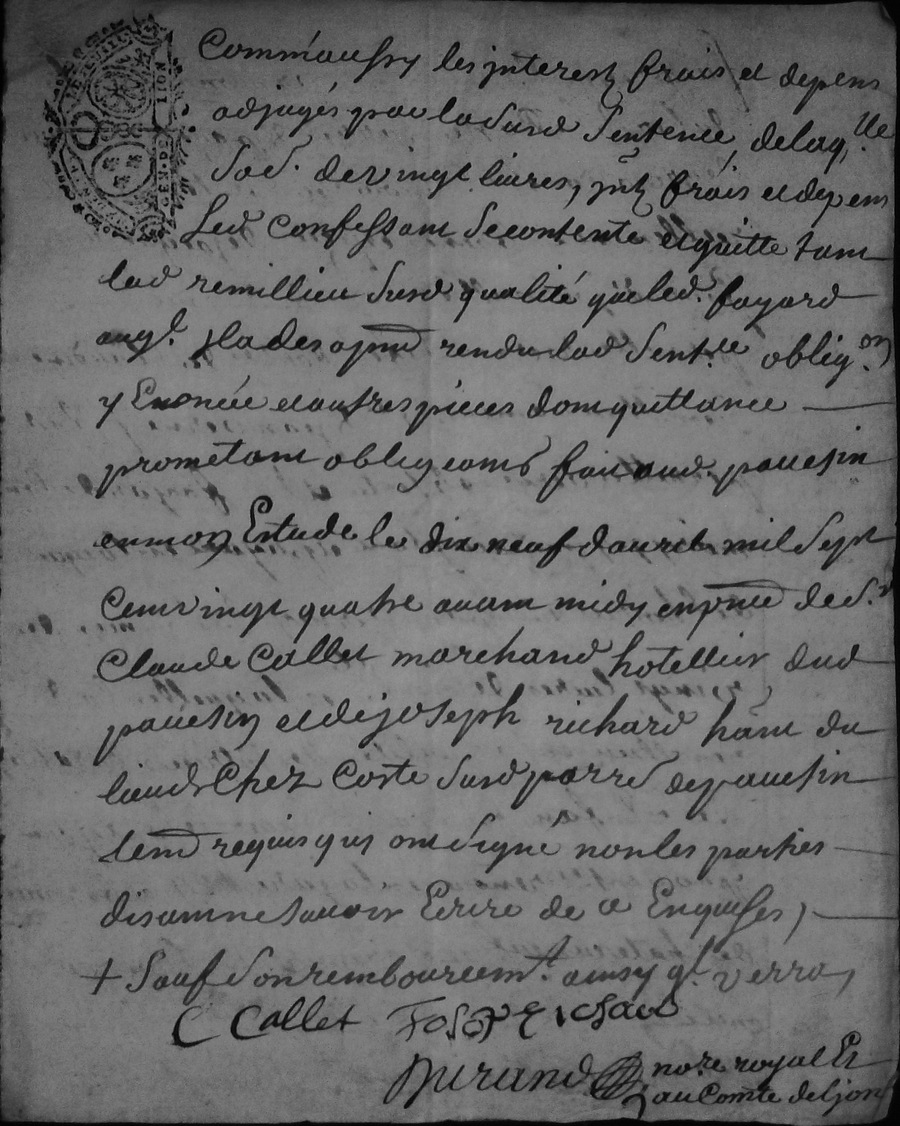 GEN. DE LION
Comm'aussy les jnterestz frais et depens
adjugés par lad susd Sentence, de laq.lle
Sod. de vingt liures, jntz frais et depens
Led confessant se contente et quitte tant
lad remillieu susd qualité que led. fayard
auql. jla des apnt rendu lad Sent.ce oblig.on
y Enoncée et autres pieces dont quittance
prometant obligeant &c fait aud. pauesin
en mon Estude le dix neuf d'auril mil Sept
Cent vingt quatre auant midy en pnce de S.r
Claude Callet marchand hotellier dud
pauesin et de joseph richard hãnt du
lieu de Chez Coste susd parrse de pauesin
temt requis qui ont signé non les parties
disant ne sauoir Ecrire de ce Enquises,
+ Sauf son rembourcemt. ainsy ql. verra,
C Callet Joseph richard
Durand no.re royal Er
au Comté de Ljon